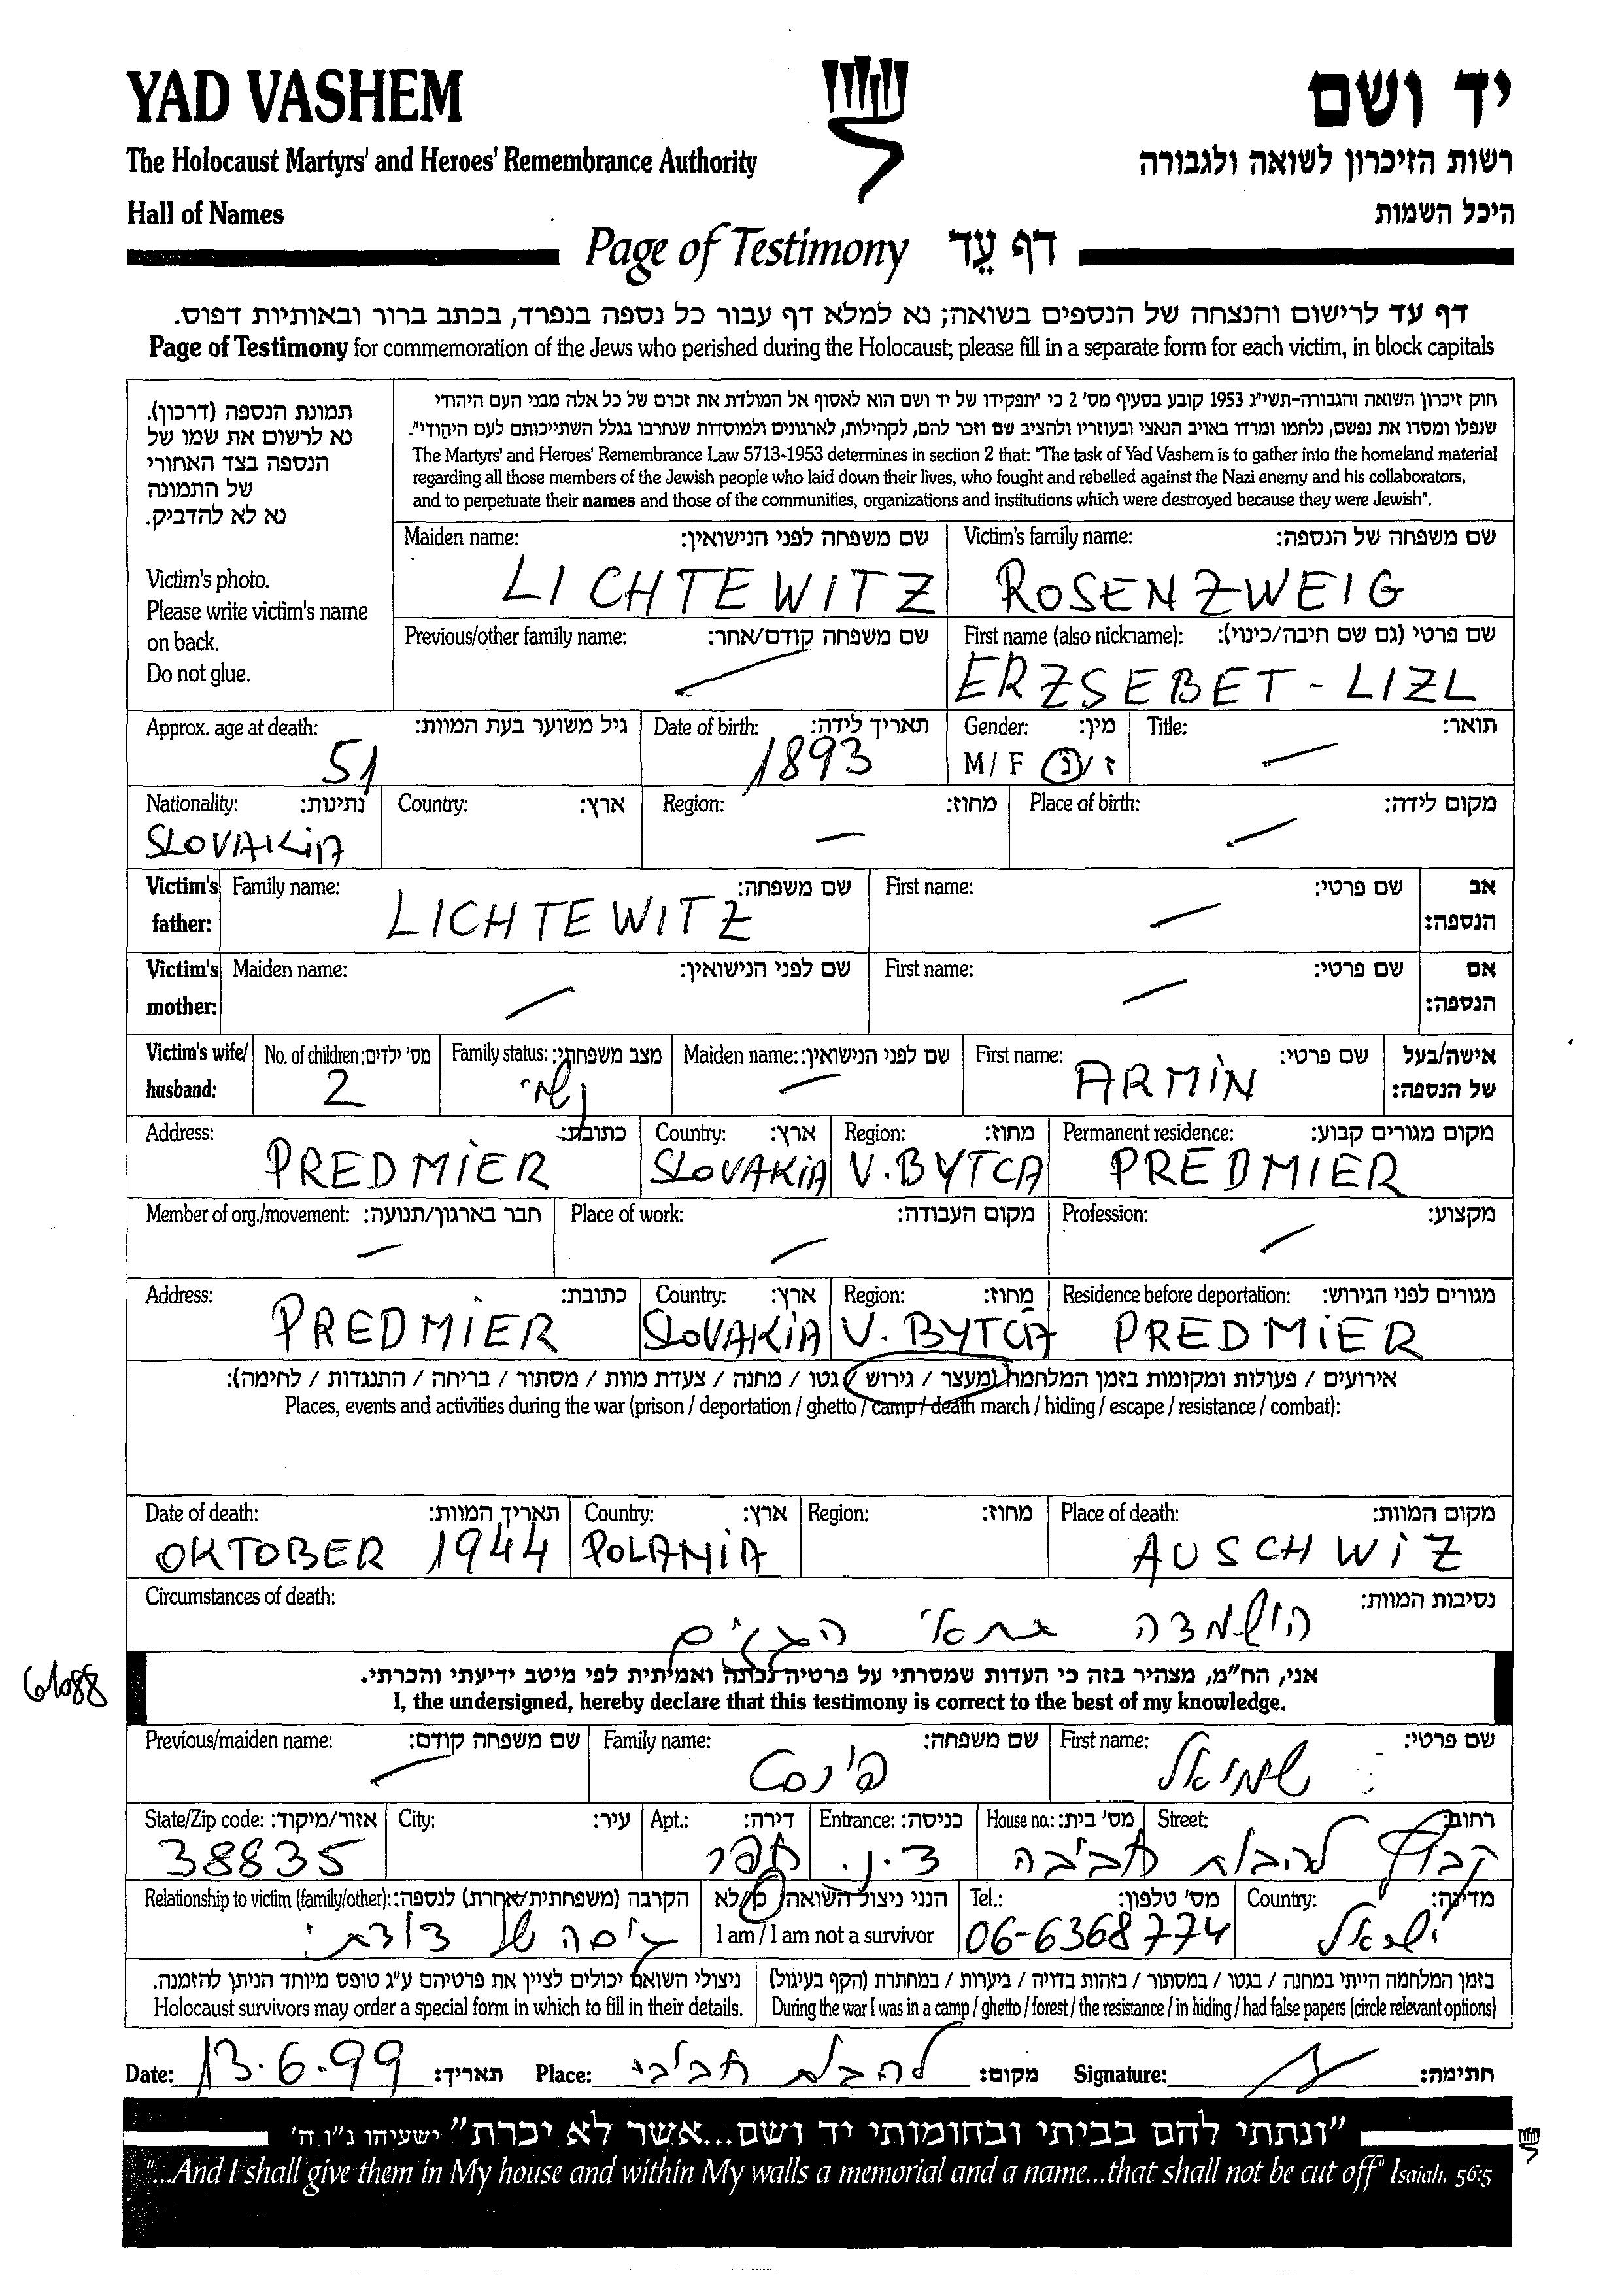 YAD VASHEM
יד ושם
The Holocaust Martyrs' and Heroes' Remembrance Authority
רשות הזיכרון לשואה ולגבורה
Hall of Names
היכל השמות
Page of Testimony דף עֵד
דף עד לרישום והנצחה של הנספים בשואה; נא למלא דף עבור כל נספה בנפרד, בכתב ברור ובאותיות דפוס.
Page of Testimony for commemoration of the Jews who perished during the Holocaust; please fill in a separate form for each victim, in block capitals
תמונת הנספה (דרכון).
נא לרשום את שמו של
הנספה בצד האחורי
של התמונה
נא לא להדביק.
Victim's photo.
Please write victim's name
on back.
Do not glue.
חוק זיכרון השואה והגבורה-תשי"ג 1953 קובע בסעיף מס' 2 כי "תפקידו של יד ושם הוא לאסוף אל המולדת את זכרם של כל אלה מבני העם היהודי
שנפלו ומסרו את נפשם, נלחמו ומרדו באויב הנאצי ובעוזריו ולהציב שם וזכר להם, לקהילות, לארגונים ולמוסדות שנחרבו בגלל השתייכותם לעם היהודי".
The Martyrs' and Heroes' Remembrance Law 5713-1953 determines in section 2 that: "The task of Yad Vashem is to gather into the homeland material
regarding all those members of the Jewish people who laid down their lives, who fought and rebelled against the Nazi enemy and his collaborators,
and to perpetuate their names and those of the communities, organizations and institutions which were destroyed because they were Jewish".
Maiden name: שם משפחה לפני הנישואין: Victim's family name: שם משפחה של הנספה:
LICHTEWITZ ROSENZWEIG
Previous/other family name: שם משפחה קודם/אחר: First name (also nickname): שם פרטי (גם שם חיבה/כינוי):
ERZSEBET - LIZL
Approx. age at death: גיל משוער בעת המוות: Date of birth: תאריך לידה: Gender: מין: Title: תואר:
51 1893 M / F ז / נ
Nationality: נתינות: Country: ארץ: Region: מחוז: Place of birth: מקום לידה:
SLOVAKIA
Victim's father: Family name: שם משפחה: First name: שם פרטי: אב הנספה:
LICHTEWITZ
Victim's mother: Maiden name: שם לפני הנישואין: First name: שם פרטי: אם הנספה:
Victim's wife/ husband: No. of children: מס' ילדים: Family status: מצב משפחתי: Maiden name: שם לפני הנישואין: First name: שם פרטי: אישה/בעל של הנספה:
2 נשוי ARMIN
Address: כתובת: Country: ארץ: Region: מחוז: Permanent residence: מקום מגורים קבוע:
PREDMIER SLOVAKIA V. BYTCA PREDMIER
Member of org./movement: חבר בארגון/תנועה: Place of work: מקום העבודה: Profession: מקצוע:
Address: כתובת: Country: ארץ: Region: מחוז: Residence before deportation: מגורים לפני הגירוש:
PREDMIER SLOVAKIA V. BYTCA PREDMIER
אירועים / פעולות ומקומות בזמן המלחמה (מעצר / גירוש / גטו / מחנה / צעדת מוות / מסתור / בריחה / התנגדות / לחימה):
Places, events and activities during the war (prison / deportation / ghetto / camp / death march / hiding / escape / resistance / combat):
Date of death: תאריך המוות: Country: ארץ: Region: מחוז: Place of death: מקום המוות:
OKTOBER 1944 POLANIA AUSCHWIZ
Circumstances of death: נסיבות המוות:
הושמדה בתאי הגזים
אני, הח"מ, מצהיר בזה כי העדות שמסרתי על פרטיה נכונה ואמיתית לפי מיטב ידיעתי והכרתי.
61088
I, the undersigned, hereby declare that this testimony is correct to the best of my knowledge.
Previous/maiden name: שם משפחה קודם: Family name: שם משפחה: First name: שם פרטי:
פינכס שמואל
State/Zip code: אזור/מיקוד: City: עיר: Apt.: דירה: Entrance: כניסה: House no.: מס' בית: Street: רחוב:
קבוץ להבות חביבה ד.נ. חפר 38835
Relationship to victim (family/other): הקרבה (משפחתית/אחרת) לנספה: הנני ניצול השואה כן/לא Tel.: מס' טלפון: Country: מדינה:
גיסה של דודתי I am / I am not a survivor 06-6368774 ישראל
ניצולי השואה יכולים לציין את פרטיהם ע"ג טופס מיוחד הניתן להזמנה. בזמן המלחמה הייתי במחנה / בגטו / במסתור / בזהות בדויה / ביערות / במחתרת (הקף בעיגול)
Holocaust survivors may order a special form in which to fill in their details. During the war I was in a camp / ghetto / forest / the resistance / in hiding / had false papers (circle relevant options)
Date: 13.6.99 תאריך: Place: להבות חביבה מקום: Signature: חתימה:
"ונתתי להם בביתי ובחומותי יד ושם...אשר לא יכרת" ישעיהו נ"ו ה'
"...And I shall give them in My house and within My walls a memorial and a name...that shall not be cut off" Isaiah, 56:5